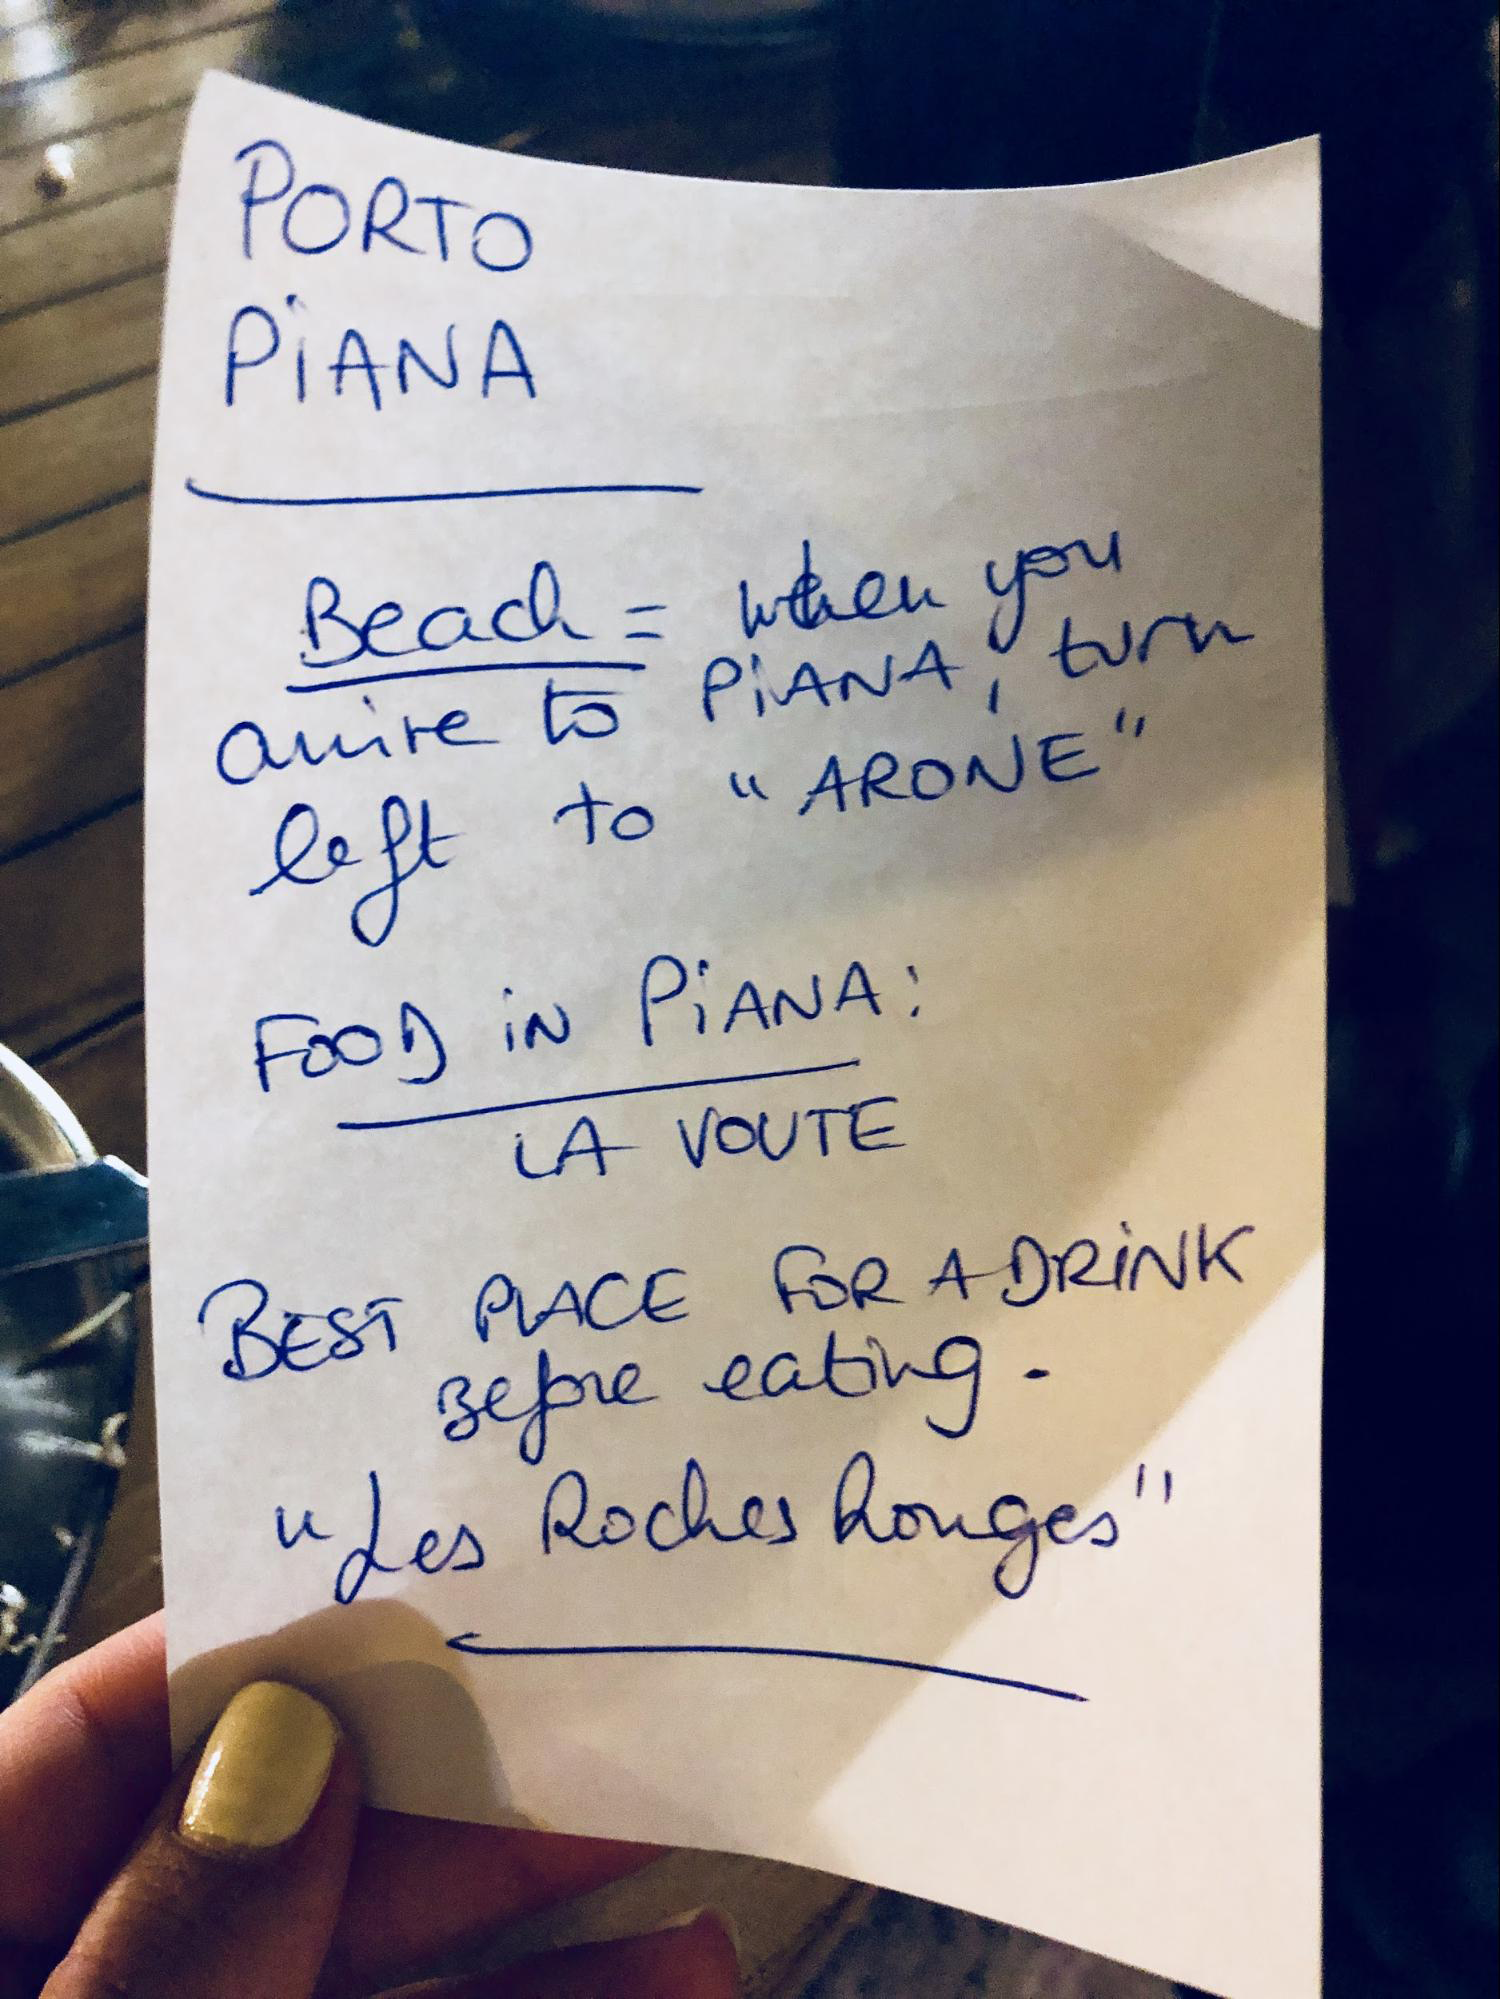 PORTO
PiANA
Beach = when you
arrive to PiANA, turn
left to "ARONE"
FOOD iN PiANA:
LA VOUTE
BEST PLACE FOR A DRiNK
Before eating.
"Les Roches Rouges"